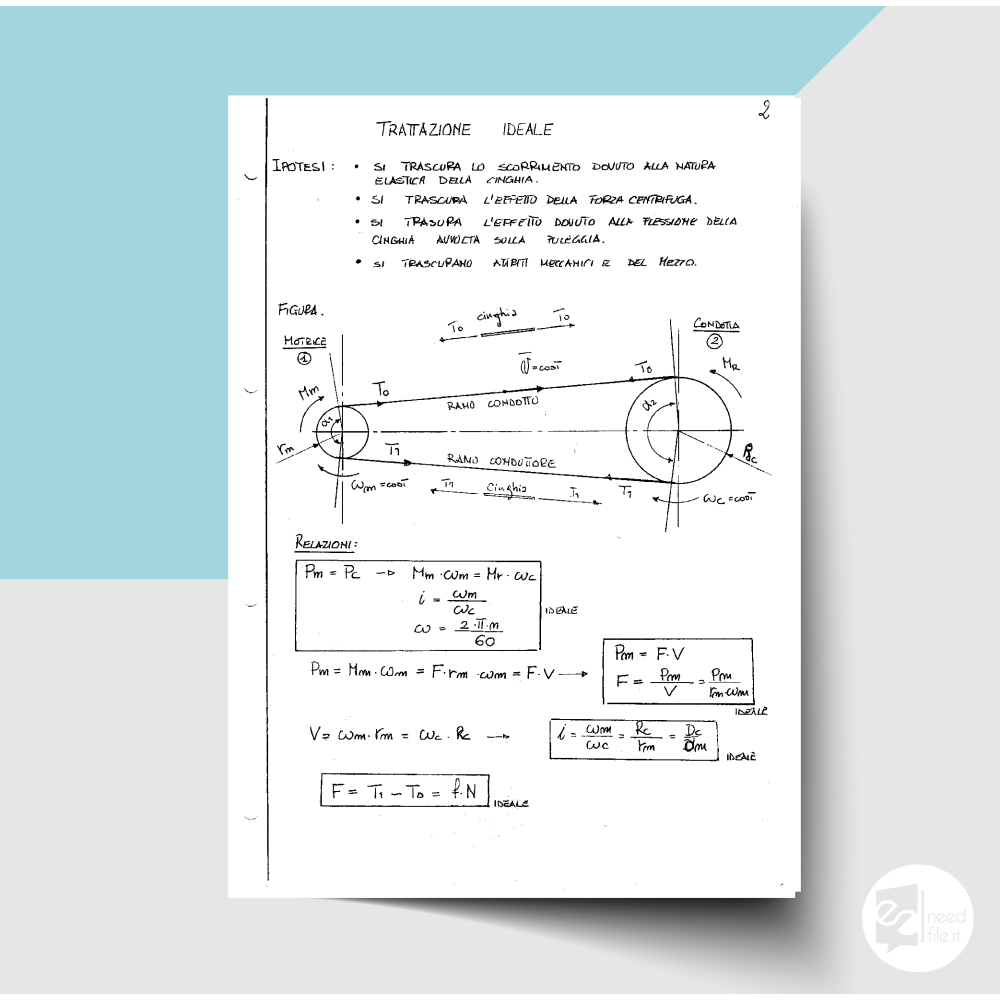 2
TRATTAZIONE IDEALE
IPOTESI: • SI TRASCURA LO SCORRIMENTO DOVUTO ALLA NATURA
ELASTICA DELLA CINGHIA.
• SI TRASCURA L'EFFETTO DELLA FORZA CENTRIFUGA.
• SI TRASURA L'EFFETTO DOVUTO ALLA FLESSIONE DELLA
CINGHIA AVVOLTA SULLA PULEGGIA.
• SI TRASCURANO ATTRITI MECCANICI E DEL MEZZO.
FIGURA.
T0 cinghia T0
MOTRICE
1
CONDOTTA
2
V = cost
Mm
T0
T0
MR
RAMO CONDOTTO
α1
α2
rm
T1
RAMO CONDUTTORE
Rc
ωm = cost
T1 Cinghia T1
T1
ωc = cost
RELAZIONI:
Pm = Pc → Mm · ωm = Mr · ωc
i = ωm / ωc
IDEALE
ω = 2 · π · n / 60
Pm = Mm · ωm = F · rm · ωm = F · V →
Pm = F · V
F = Pm / V = Pm / rm · ωm
IDEALE
V = ωm · rm = ωc · Rc →
i = ωm / ωc = Rc / rm = Dc / dm
IDEALE
F = T1 - T0 = f · N
IDEALE
need
file.it